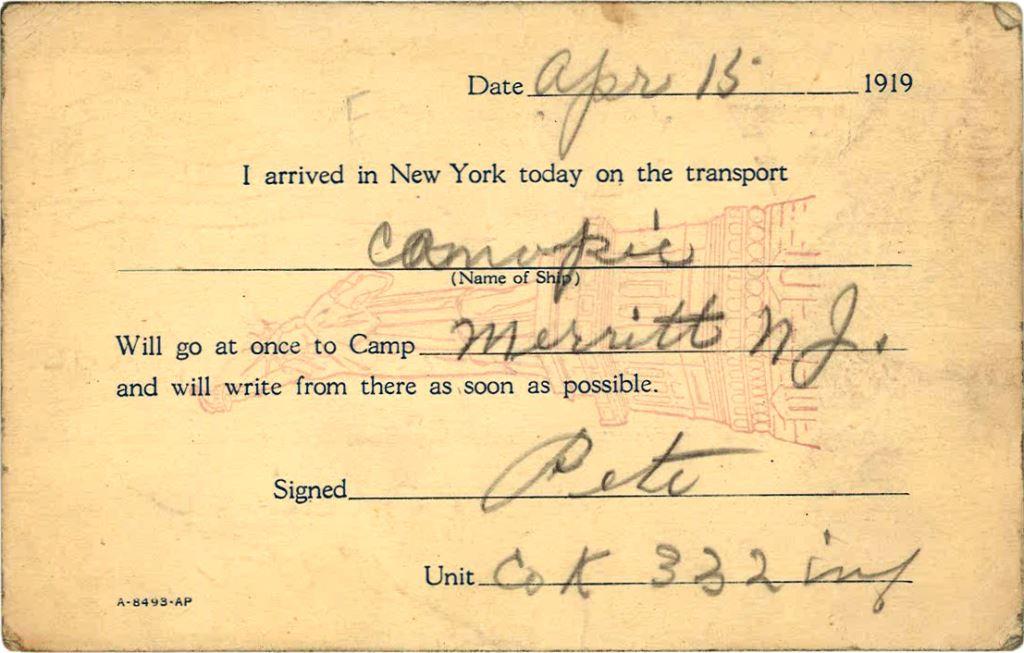 Date Apr 15 1919
I arrived in New York today on the transport
Canopic
(Name of Ship)
Will go at once to Camp Merritt N J.
and will write from there as soon as possible.
Signed Pete
Unit Co K 332 inf
A-8493-AP